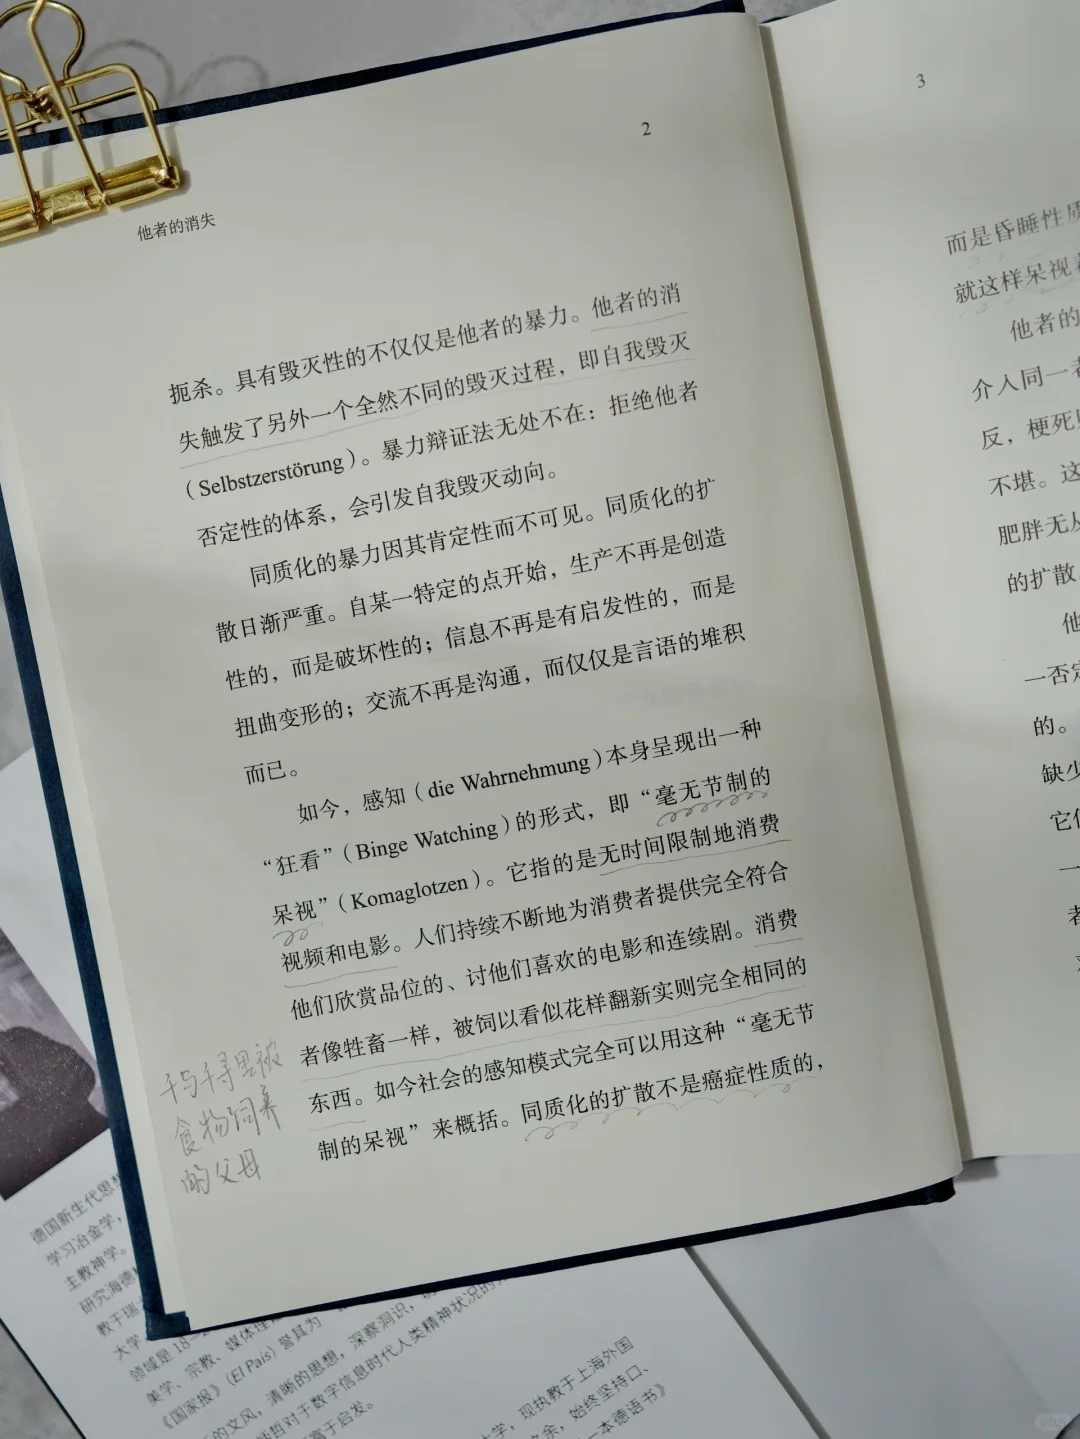 2
他者的消失
扼杀。具有毁灭性的不仅仅是他者的暴力。他者的消
失触发了另外一个全然不同的毁灭过程，即自我毁灭
（Selbstzerstörung）。暴力辩证法无处不在：拒绝他者
否定性的体系，会引发自我毁灭动向。
同质化的暴力因其肯定性而不可见。同质化的扩
散日渐严重。自某一特定的点开始，生产不再是创造
性的，而是破坏性的；信息不再是有启发性的，而是
扭曲变形的；交流不再是沟通，而仅仅是言语的堆积
而已。
如今，感知（die Wahrnehmung）本身呈现出一种
“狂看”（Binge Watching）的形式，即“毫无节制的
呆视”（Komaglotzen）。它指的是无时间限制地消费
视频和电影。人们持续不断地为消费者提供完全符合
他们欣赏品位的、讨他们喜欢的电影和连续剧。消费
者像牲畜一样，被饲以看似花样翻新实则完全相同的
东西。如今社会的感知模式完全可以用这种“毫无节
制的呆视”来概括。同质化的扩散不是癌症性质的，
千与千寻里被
食物饲养
的父母
3
而是昏睡性质
就这样呆视着
他者的
介入同一者
反，梗死
不堪。这
肥胖无从
的扩散
他
一否定
的。
缺少
它们
一
者
德国新生代思想
学习冶金学，
主教神学。
研究海德
教于瑞士
大学
领域是18
美学、宗教、媒体理
《国家报》（El País）誉其为
的文风，清晰的思想，深察洞识，
哲对于数字信息时代人类精神状况的
富于启发。
大学，现执教于上海外国
余，始终坚持口、
一本德语书》